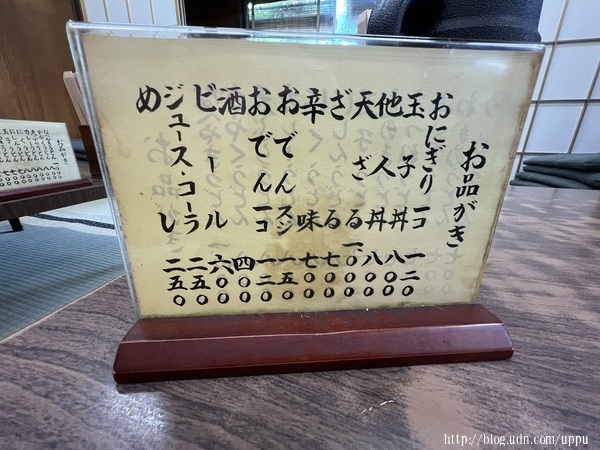 お品がき
おにぎり 一コ 一二〇
玉子丼 八〇〇
他人丼 八〇〇
天ざる 一、〇〇〇
ざる 七〇〇
辛味 七〇〇
おでん スジ 一五〇
おでん 一コ 一二〇
酒 四〇〇
ビール 六〇〇
ジュース・コーラ 二五〇
めし 二五〇
http://blog.udn.com/uppu